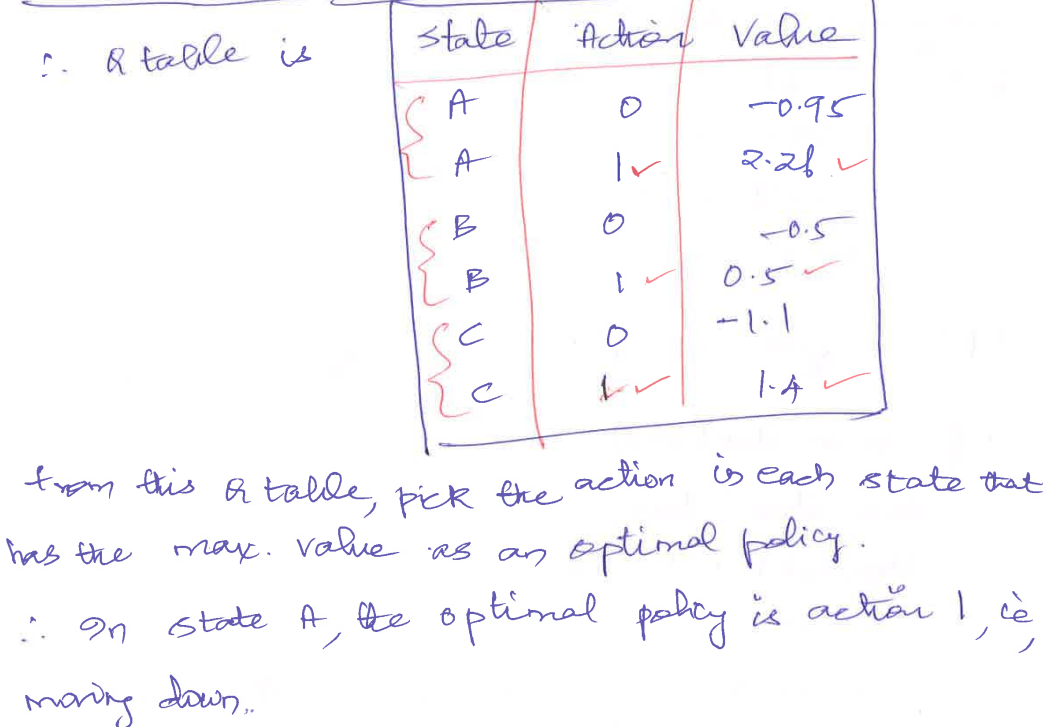 ∴ Q table is
State Action Value
A 0 -0.95
A 1 ✓ 2.28 ✓
B 0 -0.5
B 1 ✓ 0.5 ✓
C 0 -1.1
C 1 ✓ 1.4 ✓
from this Q table, pick the action is each state that
has the max. value as an optimal policy.
∴ In state A, the optimal policy is action 1, ie,
moving down.